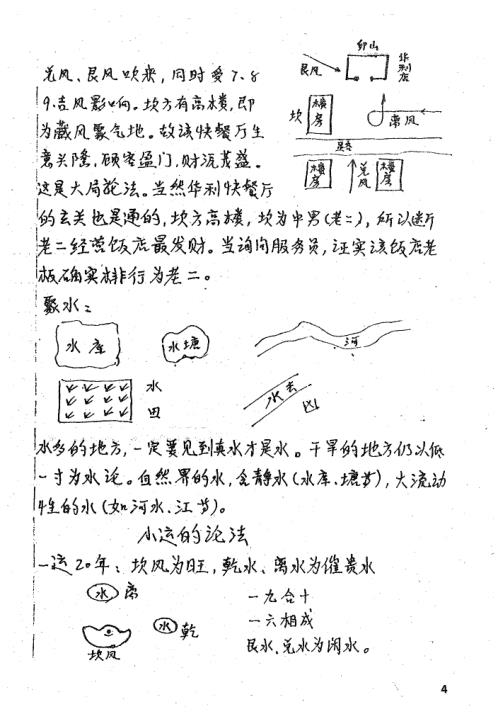 兑风、艮风吹来，同时受7、8
9、吉风影响。坎方有高楼，即
为藏风聚气地。故该快餐厅生
意兴隆，顾客盈门，财源茂盛。
这是大局论法。当然华利快餐厅
的玄关也是通的，坎方高楼，坎为中男（老二），所以这厅
老二经营饭店最发财。当询问服务员，证实该饭店老
板确实排行为老二。
卯山
华利店
艮风
坎
楼房
巽风
路
楼房
兑风
楼房
聚水：
水库
水塘
河
水田
水去
凶
水多的地方，一定要见到真水才是水。干旱的地方仍以低
一寸为水论。自然界的水，含静水（水库、塘等），大流动
性的水（如河水、江等）。
小运的论法
一运20年：坎风为旺，乾水、离水为催贵水
水 离
水 乾
坎风
一九合十
一六相成
艮水、兑水为闲水。
4